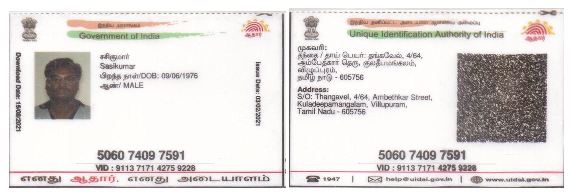 இந்திய அரசாங்கம்
Government of India
ஆதார்
Download Date: 15/09/2021
சசிகுமார்
Sasikumar
பிறந்த நாள்/DOB: 09/06/1976
ஆண்/ MALE
Issue Date: 03/02/2021
5060 7409 7591
VID : 9113 7171 4275 9228
எனது ஆதார், எனது அடையாளம்
இந்திய தனிப்பட்ட அடையாள ஆணைய அமைப்பு
Unique Identification Authority of India
ஆதார்
முகவரி:
தந்தை / தாய் பெயர்: தங்கவேல், 4/64,
அம்பேத்கார் தெரு, குலதீபமங்கலம்,
விழுப்புரம்,
தமிழ் நாடு - 605756
Address:
S/O: Thangavel, 4/64, Ambethkar Street,
Kuladeepamangalam, Villupuram,
Tamil Nadu - 605756
5060 7409 7591
VID : 9113 7171 4275 9228
1947 | help@uidai.gov.in | www.uidai.gov.in